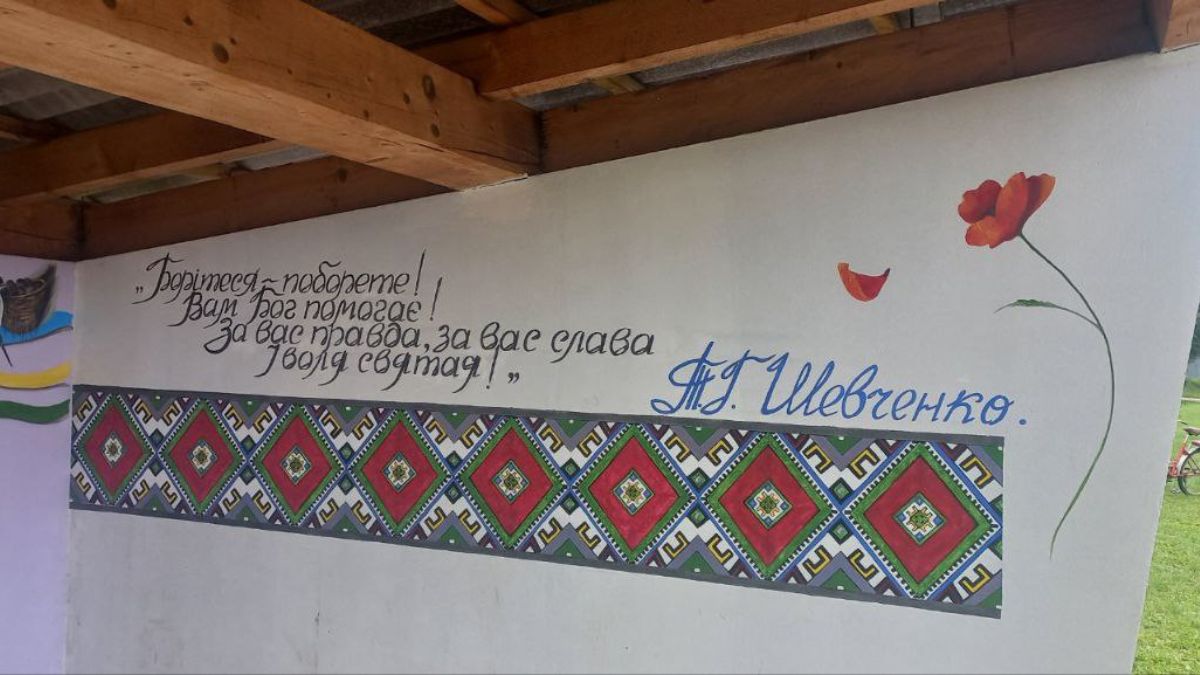 „Борітеся – поборете!
Вам Бог помогає!
За вас правда, за вас слава
І воля святая!„
Т.Г. Шевченко.